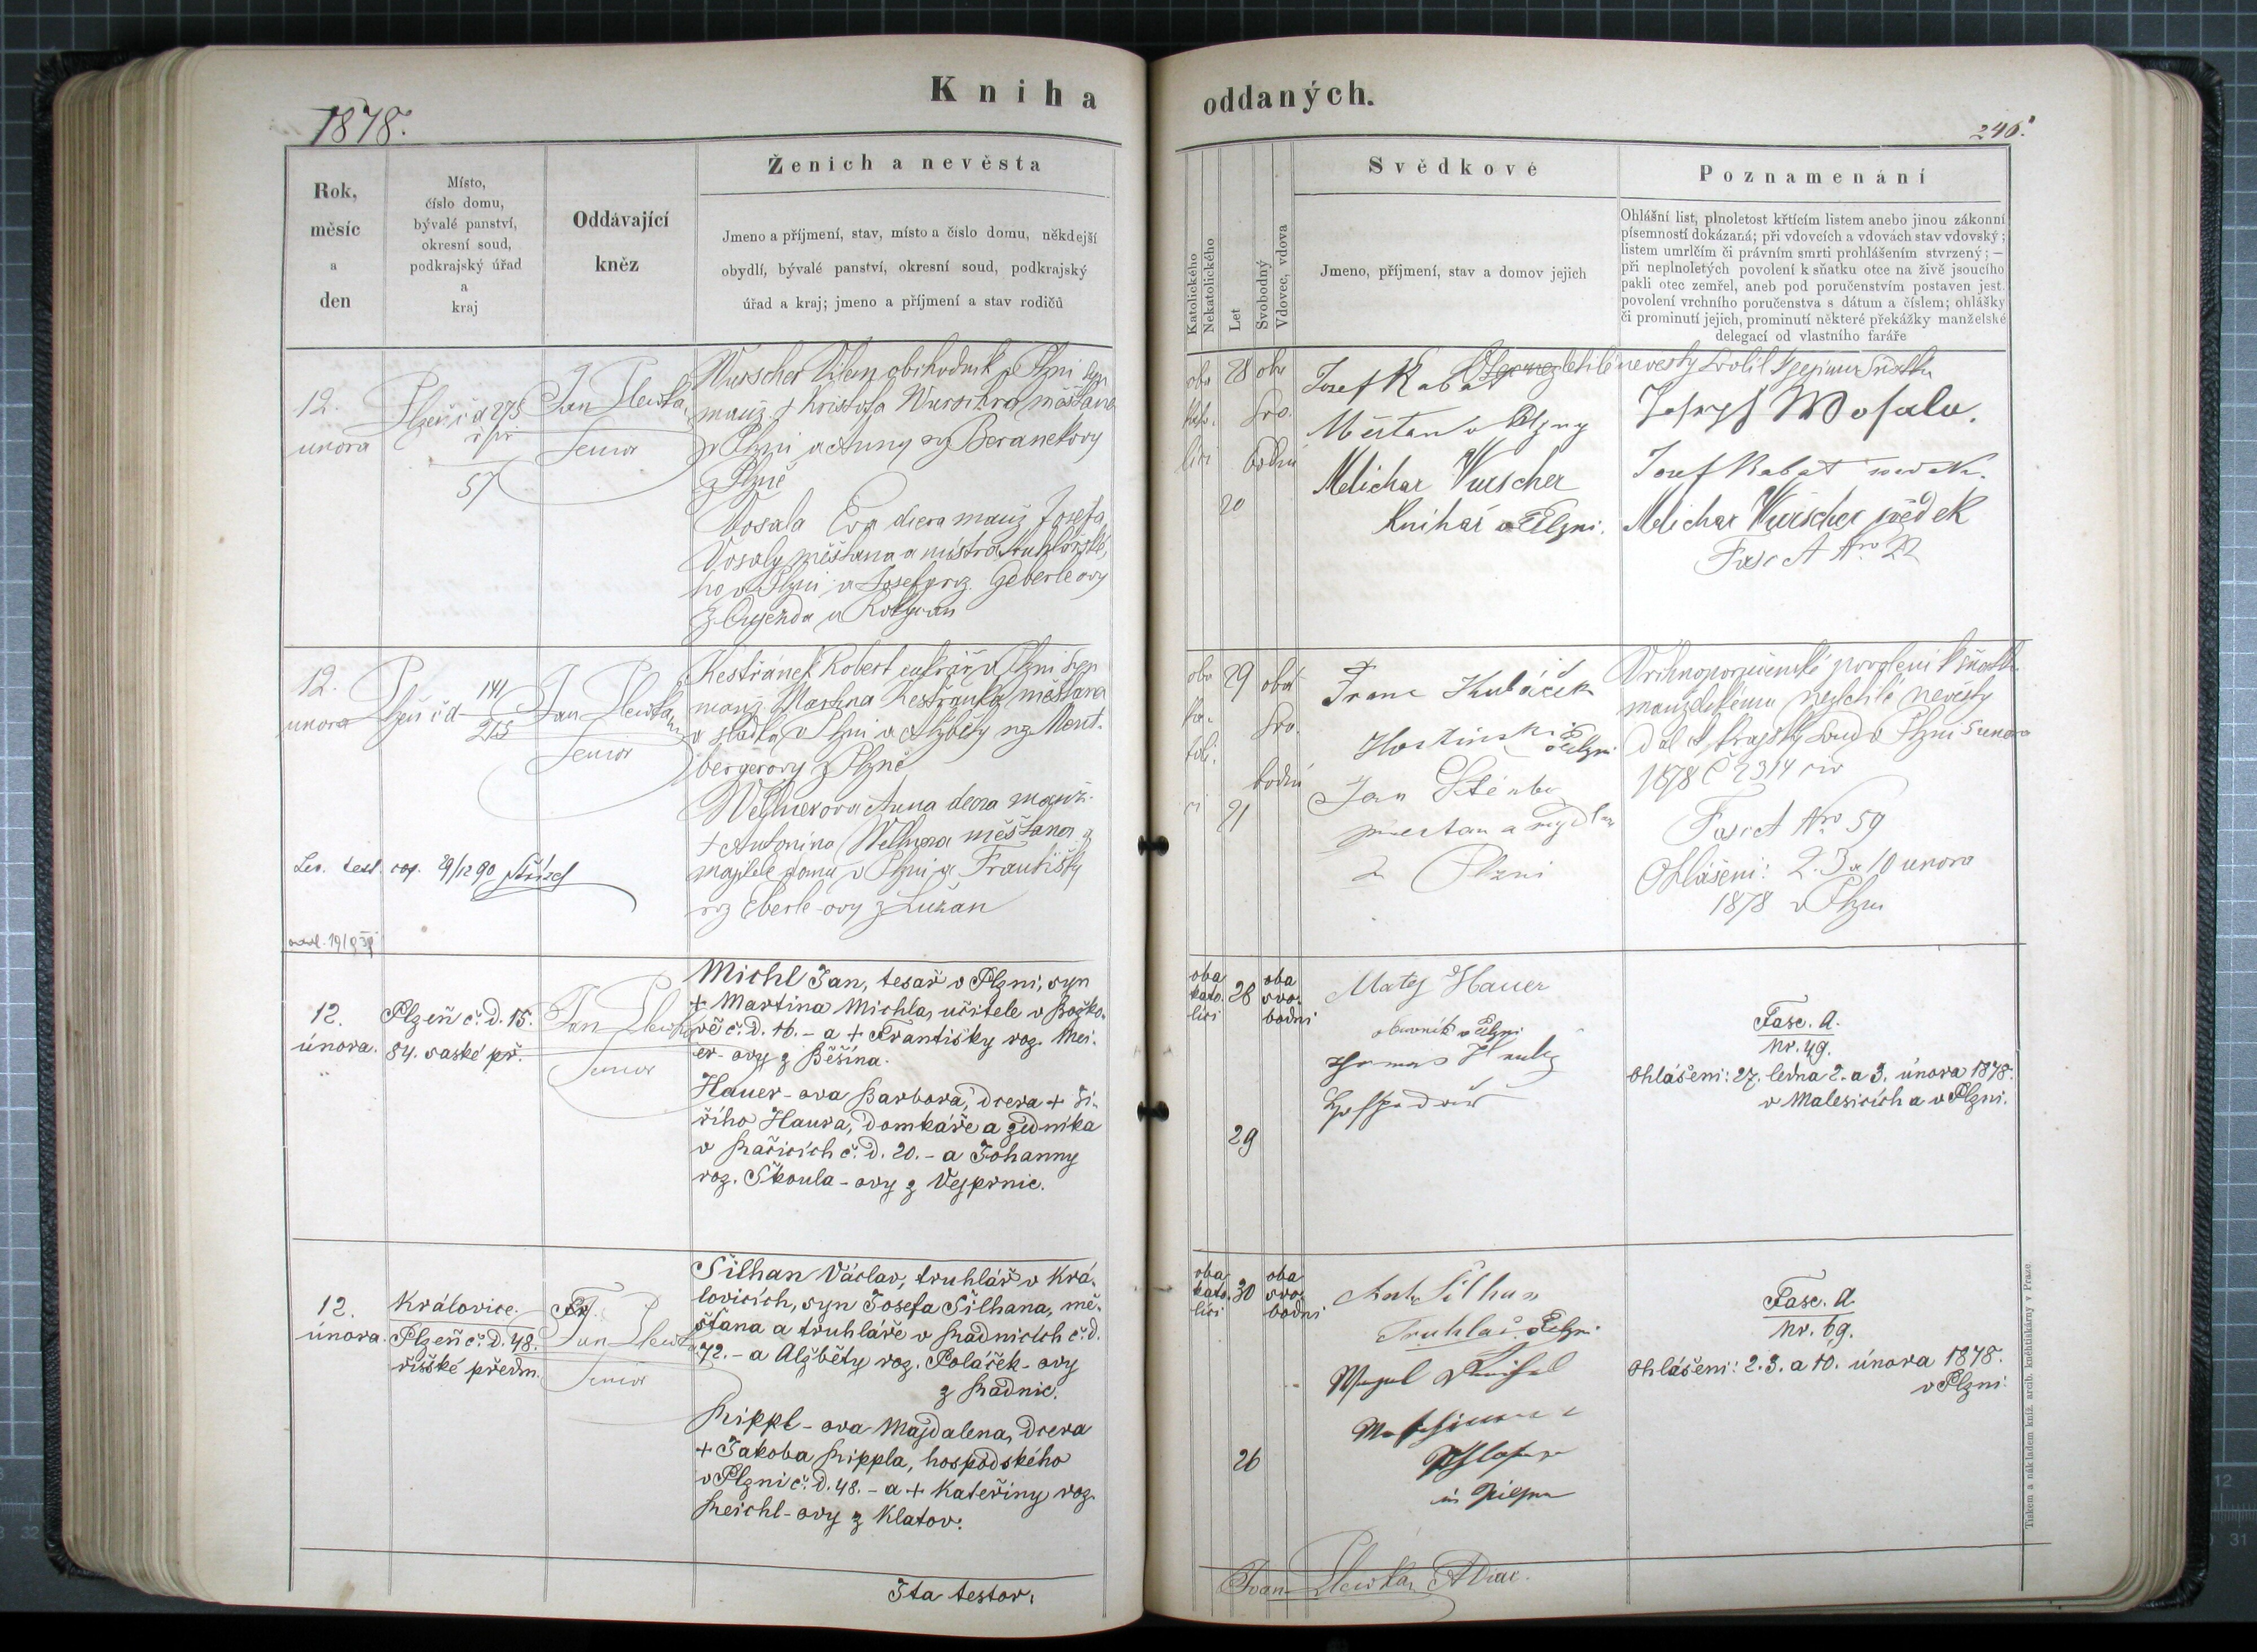 Kniha oddaných.
1878.
246.
Rok, měsíc a den
Místo, číslo domu, bývalé panství, okresní soud, podkrajský úřad a kraj
Oddávající kněz
Ženich a nevěsta
Jmeno a příjmení, stav, místo a číslo domu, někdejší
obydlí, bývalé panství, okresní soud, podkrajský
úřad a kraj; jmeno a příjmení a stav rodičů
Katolického
Nekatolického
Let
Svobodný
Vdovec, vdova
Svědkové
Jmeno, příjmení, stav a domov jejich
Poznamenání
Ohlášní list, plnoletost křtícím listem anebo jinou zákonní
písemností dokázaná; při vdovcích a vdovách stav vdovský;
listem umrlčím či právním smrti prohlášením stvrzený; —
při neplnoletých povolení k sňatku otce na živě jsoucího
pakli otec zemřel, aneb pod poručenstvím postaven jest
povolení vrchního poručenstva s dátum a číslem; ohlášky
či prominutí jejich, prominutí některé překážky manželské
delegací od vlastního faráře
12.
února
Plzeň čd 275
57
Jan Slewka
Senior
Wurscher Vilem obchodník v Plzni syn
manž. † Kristofa Wurschra měšťana
v Plzni a Anny roz Beranekovy
z Plzně
Vosala Eva dcera manž Josefa
Vosaly měšťana a mistra truhlářské
ho v Plzni a Josefy roz. Geberleovy
z Oujezda u Rokycan
28
20
Josef Kabát
Měšťan v Plzny
Melichar Wurscher
Knihař v Plzni.
Josef Wosala.
Josef Kabat svedek.
Melichar Wurscher svědek
Fasc A Nro 22
12.
února
Plzeň čd 141
275
Jan Slewka
Senior
Kestřánek Robert cukrář v Plzni syn
manž. Martina Kestřánka měšťana
a sládka v Plzni a Alžběty roz Mont-
bergerovy z Plzně
Wellnerova Anna dcera manž.
† Antonína Wellnera měšťana a
majitele domu v Plzni a Františky
roz Eberle-ovy z Lužan
Lev. test. cop. 29/12 90
29
21
Franc Kubáček
Hostinský v Plzni
Jan
v Plzni
Vrchnoporučenské povolení k sňatku
manželskému nezletilé nevěsty
dal kk krajský soud v Plzni 5 února
1878 Č 2314 civ
Fasc A Nro 59
Ohlášení: 2. 3 a 10 února
1878 v Plzni
12.
února.
Plzeň č. d. 15.
84. saské př.
Jan Slewka
Senior
Michl Jan, tesař v Plzni, syn
+ Martina Michla, učitele v Božko-
vě č. d. 16. - a + Františky roz. Mei-
er-ovy z Běšína.
Hauer-ova Barbora, dcera + Ji-
řího Haura, domkáře a zedníka
v Kařicích č. d. 20. - a Johanny
roz. Škoula-ovy z Vejprnic.
oba
kato-
líci
28
29
oba
svo-
bodni
Matej Hauer
obuvník v Plzni
Fasc. A.
Nr. 49.
Ohlášení: 27. ledna 2. a 3. února 1878.
v Malesicích a v Plzni.
12.
února.
Královice.
Plzeň č. d. 48.
říšské předm.
Jan Slewka
Senior
Šilhan Václav, truhlář v Krá-
lovicích, syn Josefa Šilhana, mě-
šťana a truhláře v Radnicích č. d.
72. - a Alžběty roz. Poláček-ovy
z Radnic.
Rippl-ova Majdalena, dcera
+ Jakoba Rippla, hospodského
v Plzni č. d. 48. - a + Kateřiny roz.
Reichl-ovy z Klatov.
oba
kato-
líci
30
26
oba
svo-
bodni
Šilhan
Truhlař v Plzni
in Pilsen
Fasc. A.
Nr. 69.
Ohlášení: 2. 3. a 10. února 1878.
v Plzni.
Ita testor.
Joan Slewka
Tiskem a nákladem kníž. arcib. kněhtiskárny v Praze.